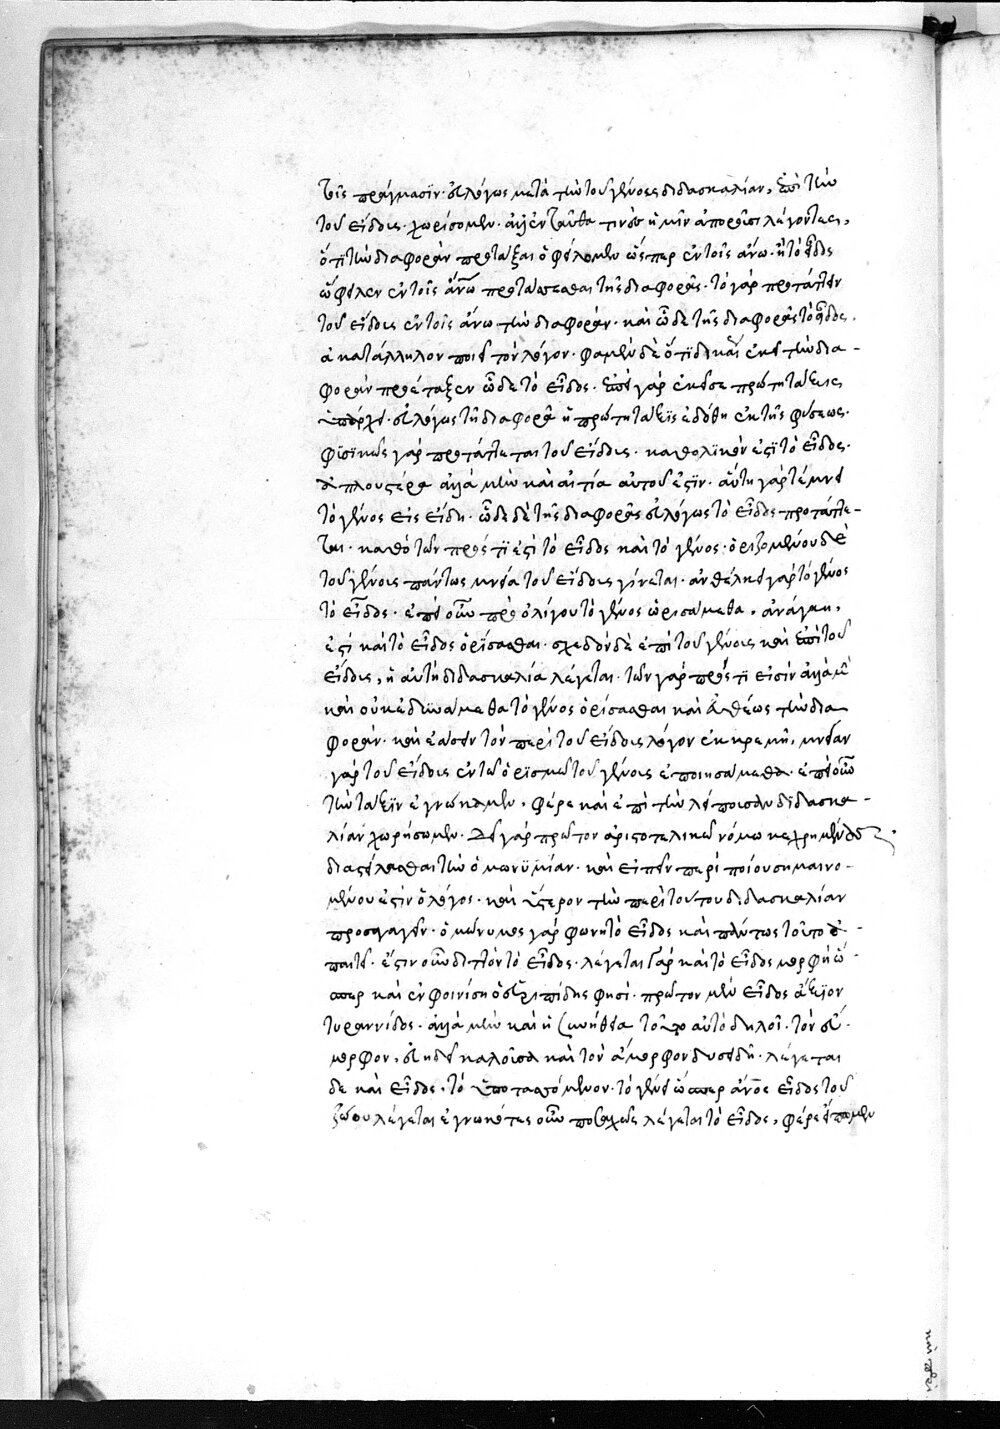 τοῖς πράγμασϊν· εὐλόγως μετὰ τὴν τοῦ γένους διδασκαλίαν, ἐπὶ τὴν
τοῦ εἴδους χωρίσομεν· ἀλλ' ἐνταῦθα τινὲς ἡμῖν ἀποροῦσι λέγοντες,
ὅτι τὴν διαφορὰν προτάξαι ὀφείλομεν ὥσπερ ἐν τοῖς ἄνω· ἢ τὸ εἶδος
ὤφειλεν ἐν τοῖς ἄνω προτάττεσθαι τῆς διαφορᾶς· τὸ γὰρ προτάττειν
τοῦ εἴδους ἐν τοῖς ἄνω τὴν διαφορὰν· καὶ ὧδε τῆς διαφορᾶς τὸ εἶδος,
ἀκατάλληλον ποιεῖ τὸν λόγον· φαμὲν δὲ ὅτϊ δικαίως ἐκεῖ τὴν δια-
φορὰν προέταξεν ὧδε τὸ εἶδος· ἐπεὶ γὰρ ἐκεῖσε πρώτη τάξις
ὑπάρχει· εὐλόγως τῇ διαφορᾷ ἡ πρώτη τάξϊς ἐδόθη ἐκ τῆς φύσεως·
φϋσϊκῶς γὰρ προτάττεται τοῦ εἴδους· καθολϊκόν ἐστϊ τὸ εἶδος·
ἁπλουστέρα ἀλλὰ μὴν καὶ αἰτία αὐτοῦ ἐστϊν· αὕτη γὰρ τέμνει
τὸ γένος εἰς εἴδη· ὧδε δὲ τῆς διαφορᾶς εὐλόγως τὸ εἶδος προτάττε-
ται· καθὸ τῶν πρός τϊ ἐστὶ τὸ εἶδος καὶ τὸ γένος· ὁριζομένου δὲ
τοῦ γένους πάντως μνεία τοῦ εἴδους γίνεται· ἀνθέλκει γὰρ τὸ γένος
τὸ εἶδος· ἐπεὶ οὖν πρὸ ὀλίγου τὸ γένος ὡρισάμεθα, ἀνάγκη,
ἐστὶ καὶ τὸ εἶδος ὁρίσασθαι· σχεδὸν δὲ ἐπὶ τοῦ γένους καὶ ἐπὶ τοῦ
εἴδους, ἡ αὐτὴ διδασκαλία λέγεται· τῶν γὰρ πρός τϊ εἰσὶν ἀλλὰ μὴν
καὶ οὐκ ἐδυνάμεθα τὸ γένος ὁρίσασθαι καὶ εὐθέως τὴν δια
φορὰν· καὶ ἐᾶσειν τὸν περὶ τοῦ εἴδους λόγον ἐκκρεμῆ, μνείαν
γὰρ τοῦ εἴδους ἐν τῷ ὁρϊσμῷ τοῦ γένους ἐποιησάμεθα· ἐπεὶ οὖν
τὴν τάξϊν ἐγνώκαμεν, φέρε καὶ ἐπὶ τὴν λείπουσαν δϊδασκα-
λίαν χωρήσωμεν· δεῖ γὰρ πρῶτον ἀριστοτελικῷ νόμῳ κεχρημένους
διαστείλασθαι τὴν ὁμωνϋμίαν· καὶ εἰπεῖν περὶ ποίου σημαινο-
μένου ἐστὶν ὁ λόγος· καὶ ὕστερον τὴν περὶ τούτου διδασκαλίαν
προσαγαγεῖν· ὁμώνυμος γὰρ φωνὴ τὸ εἶδος καὶ πάντως τοῦτο ἀ-
παιτεῖ· ἔστιν οὖν διττὸν τὸ εἶδος· λέγεται γὰρ καὶ τὸ εἶδος μορφὴ ὥ-
σπερ καὶ ἐν φοινίσση ὁ εὐριπίδης φησί· πρῶτον μὲν εἶδος ἄξϊον
τυραννίδος· ἀλλὰ μὴν καὶ ἡ συνήθεια τοῦτο αὐτὸ δηλοῖ· τὸν εὔ-
μορφον, εὐηδεῖ καλοῦσα καὶ τὸν ἄμορφον δυσειδῆ· λέγεται
δὲ καὶ εἶδος, τὸ ὑποταττόμενον· τὸ γένει ὥσπερ ἄνος εἶδος τοῦ
ζώου λέγεται ἐγνωκότες οὖν ποσαχῶς λέγεται τὸ εἶδος, φέρε εἴπωμεν